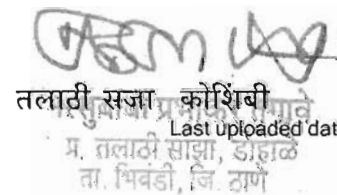 तलाठी सजा कोशिंबी
Last uploaded dat
प्र. तलाठी साझा, डोहाळे
ता. भिवंडी, जि. ठाणे